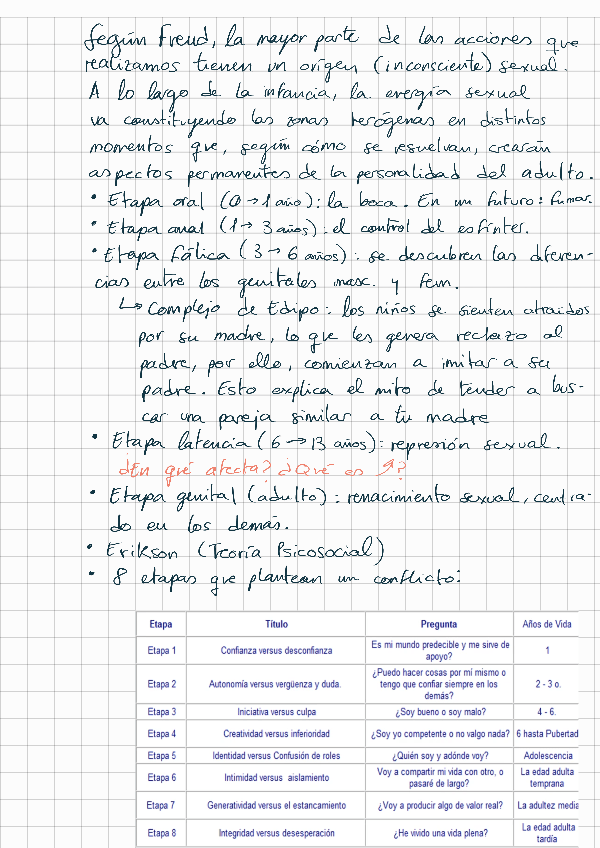 Según Freud, la mayor parte de las acciones que
realizamos tienen un origen (inconsciente) sexual.
A lo largo de la infancia, la energía sexual
va constituyendo las zonas herógenas en distintos
momentos que, según cómo se resuelvan, crearán
aspectos permanentes de la personalidad del adulto.
• Etapa oral (0 → 1 año): la boca. En un futuro: fumar.
• Etapa anal (1 → 3 años): el control del esfínter.
• Etapa fálica (3 → 6 años): se descubren las diferen-
cias entre los genitales masc. y fem.
↳ Complejo de Edipo: los niños se sienten atraidos
por su madre, lo que les genera rechazo al
padre, por ello, comienzan a imitar a su
padre. Esto explica el mito de tender a bus-
car una pareja similar a tu madre
• Etapa latencia (6 → 13 años): represión sexual.
¿En qué afecta? ¿Qué es ?
• Etapa genital (adulto): renacimiento sexual, centra-
do en los demás.
• Erikson (Teoría Psicosocial)
• 8 etapas que plantean un conflicto:
Etapa Título Pregunta Años de Vida
Etapa 1 Confianza versus desconfianza Es mi mundo predecible y me sirve de apoyo? 1
Etapa 2 Autonomía versus vergüenza y duda. ¿Puedo hacer cosas por mí mismo o tengo que confiar siempre en los demás? 2 - 3 o.
Etapa 3 Iniciativa versus culpa ¿Soy bueno o soy malo? 4 - 6.
Etapa 4 Creatividad versus inferioridad ¿Soy yo competente o no valgo nada? 6 hasta Pubertad
Etapa 5 Identidad versus Confusión de roles ¿Quién soy y adónde voy? Adolescencia
Etapa 6 Intimidad versus aislamiento Voy a compartir mi vida con otro, o pasaré de largo? La edad adulta temprana
Etapa 7 Generatividad versus el estancamiento ¿Voy a producir algo de valor real? La adultez media
Etapa 8 Integridad versus desesperación ¿He vivido una vida plena? La edad adulta tardía